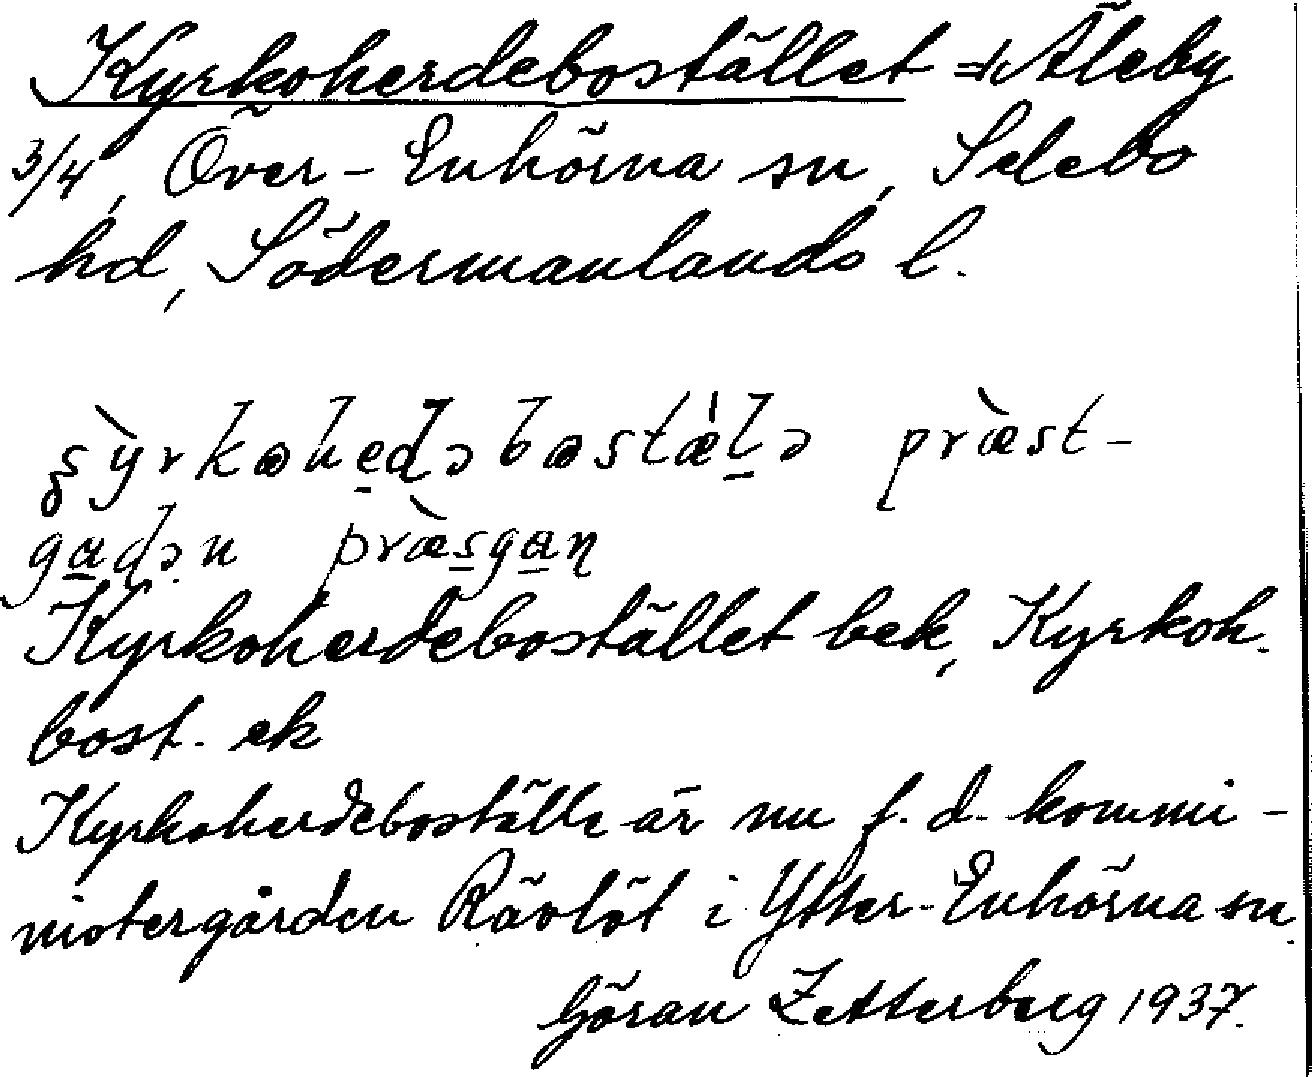 Kyrkoherdebostället = Äleby
3/4, Över-Enhörna sn, Selebo
hd, Södermanlands l.
præst-
gadən præsgan
Kyrkoherdebostället bek, Kyrkoh.
bost. ek
Kyrkoherdeboställe är nu f. d. kommi-
nistergården Rävlöt i Ytter-Enhörna sn.
Göran Zetterberg 1937.